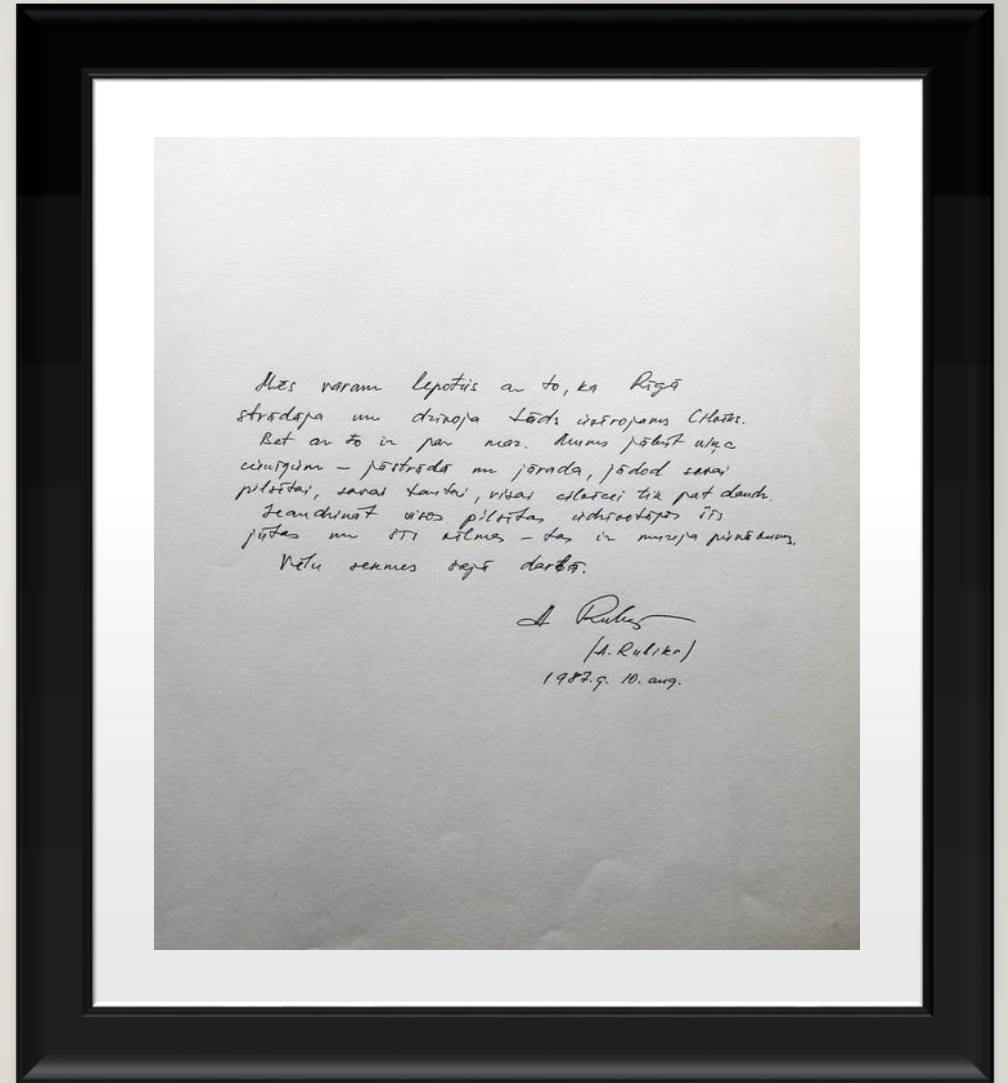 Mēs varam lepoties ar to, ka Rīgā
strādāja un dzīvoja tāds ievērojams cilvēks.
Bet ar to ir par maz. Mums jābūt viņa
cienīgiem – jāstrādā un jārada, jādod savai
pilsētai, savai tautai, visai cilvēcei tik pat daudz.
Ieaudzināt visos pilsētas iedzīvotājos šīs
jūtas un šīs vēlmes – tas ir muzeja pienākums.
Vēlu sekmes šajā darbā.
(A. Rubiks)
1987.g. 10. aug.